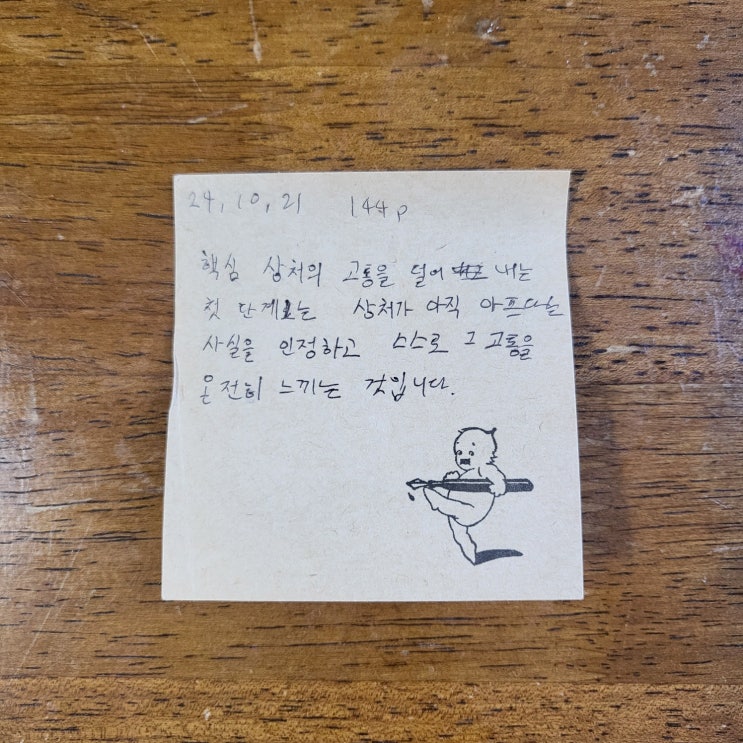 24, 10, 21 144p
핵심 상처의 고통을 덜어 내는
첫 단계는 상처가 아직 아프다는
사실을 인정하고 스스로 그 고통을
온전히 느끼는 것입니다.